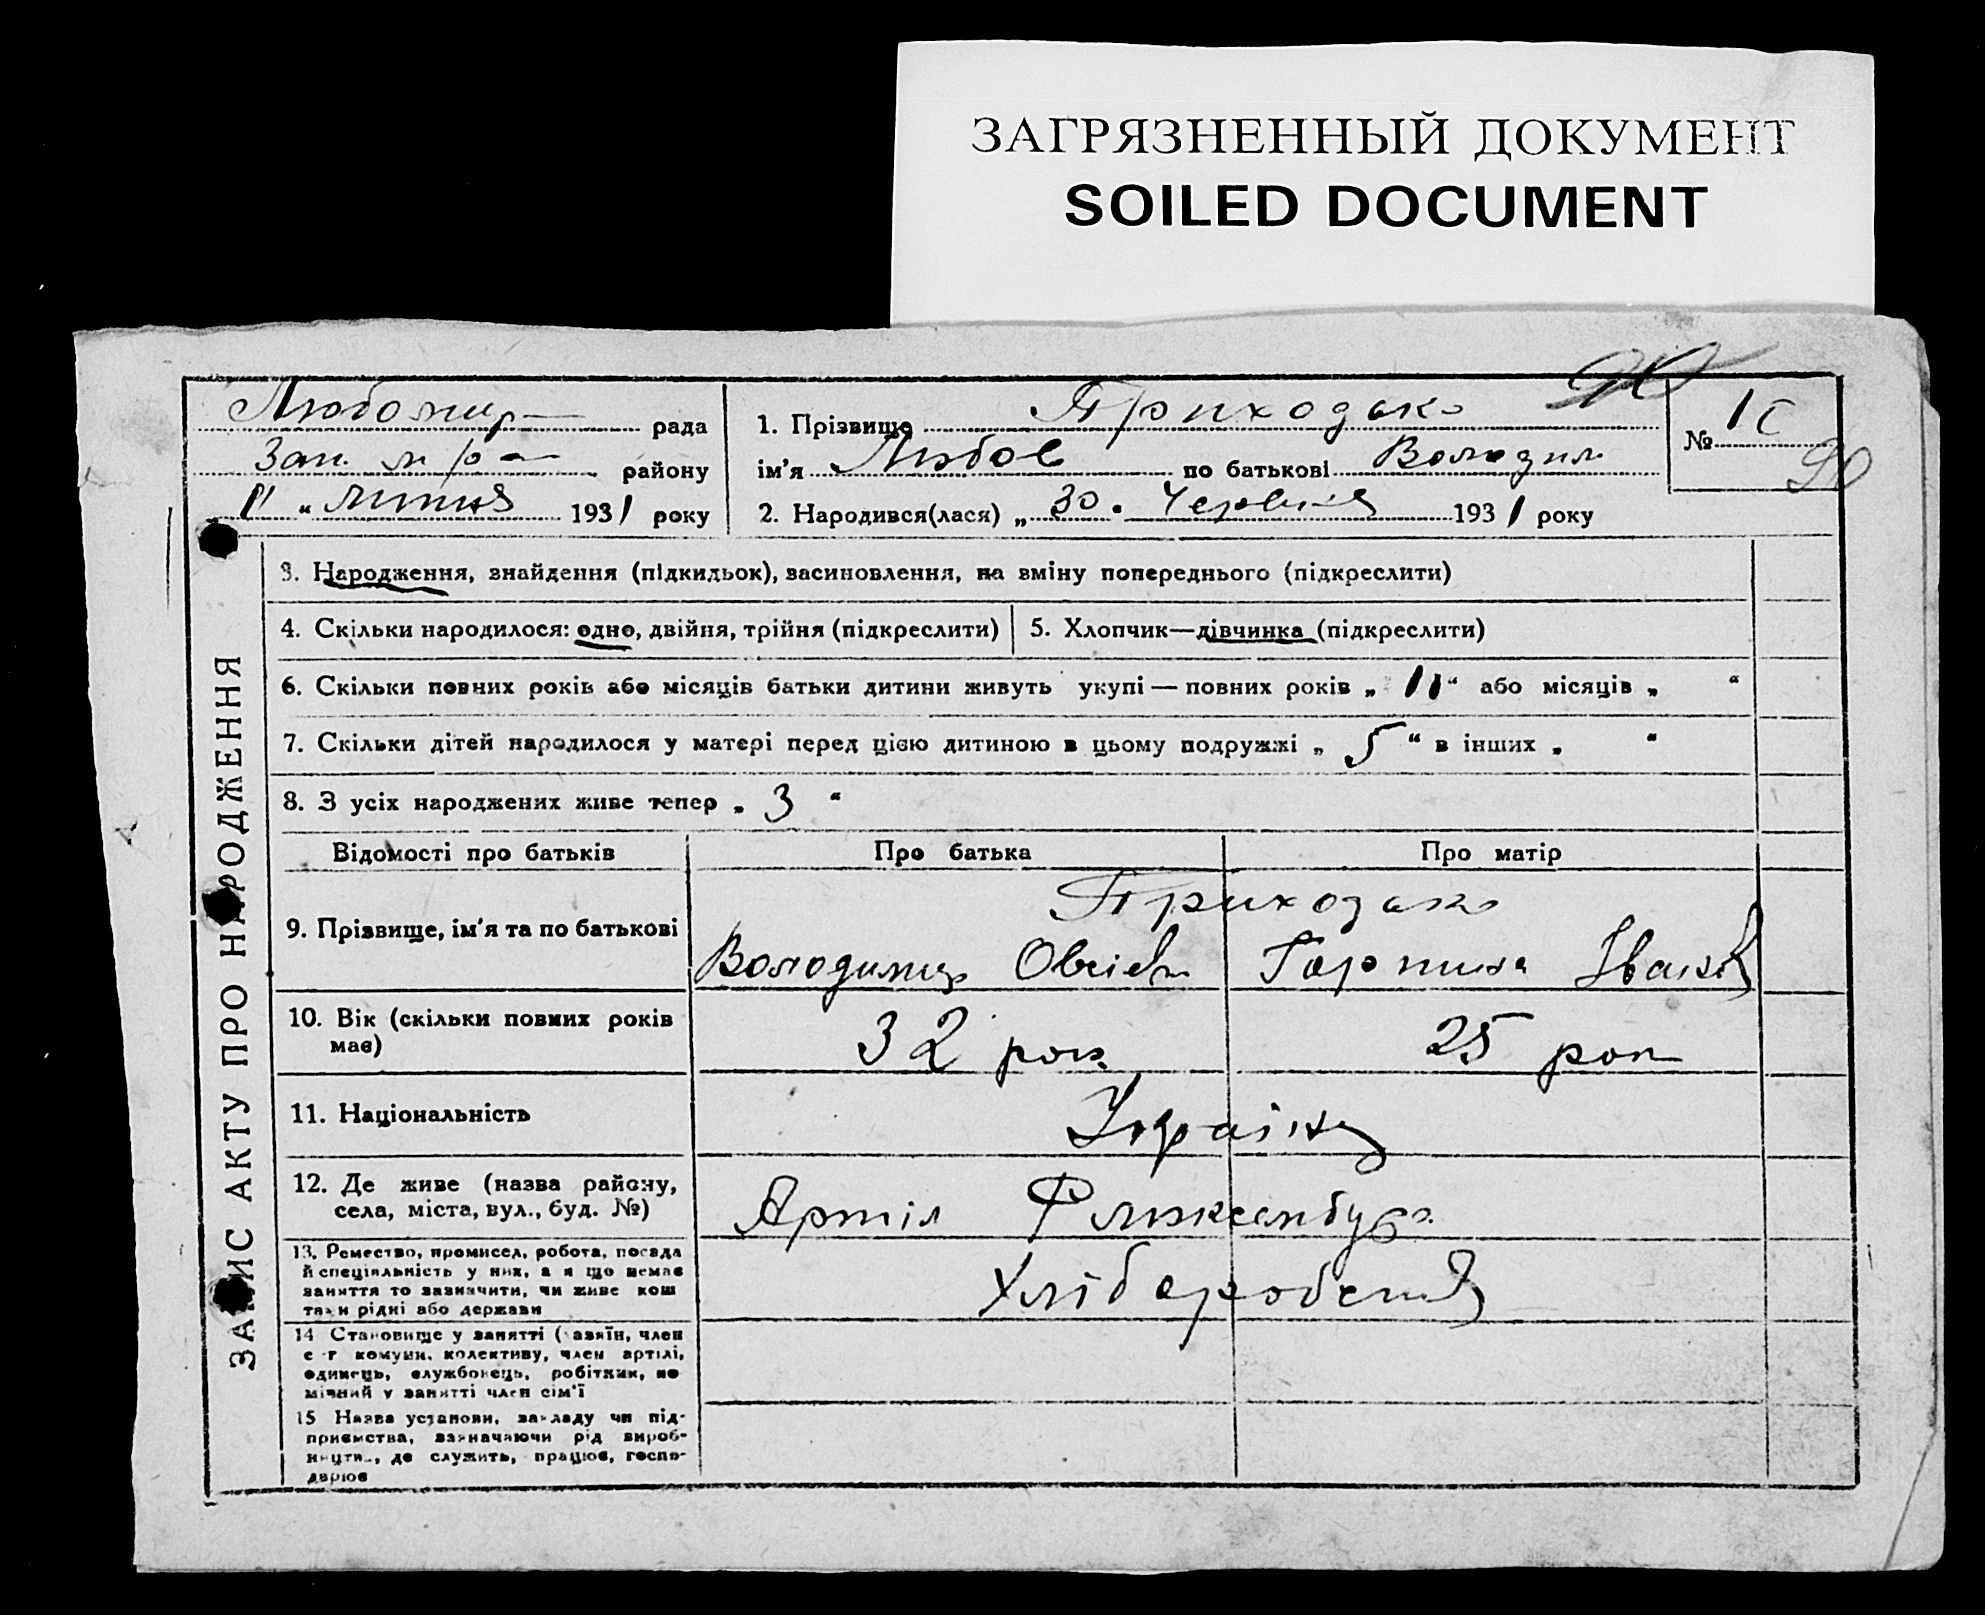 ЗАГРЯЗНЕННЫЙ ДОКУМЕНТ
SOILED DOCUMENT
90
Любомир рада
Зап. м р района району
11 “ липня 1931 року
1. Прізвище Приходько
ім’я Любов по батькові Володим
2. Народився(лася) „ 30 . Червня 1931 року
№ 10
90
ЗАПИС АКТУ ПРО НАРОДЖЕННЯ
3. Народження, знайдення (підкидьок), засиновлення, на зміну попереднього (підкреслити)
4. Скільки народилося: одно, двійня, трійня (підкреслити)
5. Хлопчик—дівчинка (підкреслити)
6. Скільки повних років або місяців батьки дитини живуть укупі — повних років „ 11 “ або місяців „ “
7. Скільки дітей народилося у матері перед цією дитиною в цьому подружжі „ 5 “ в інших „ “
8. З усіх народжених живе тепер „ 3 “
Відомості про батьків Про батька Про матір
9. Прізвище, ім’я та по батькові
Приходько
Володимир Овсієв Горпина Іванів
10. Вік (скільки повних років
має)
32 рок 25 рок
11. Національність
Україн
12. Де живе (назва району,
села, міста, вул., буд. №)
Артіл
13. Ремество, промисел, робота, посада
й спеціяльність у них, а я що немає
заняття то зазначити, чи живе кош
тами рідні або держави
Хліборобств
14 Становище у занятті (хазяїн, член
с-г комуни, колективу, член артілі,
одинець, службовець, робітник, по
мічний у занятті член сім’ї
15 Назва установи, закладу чи під-
приємства, зазначаючи рід вироб-
ництва, де служить, працює, госпо-
дарює